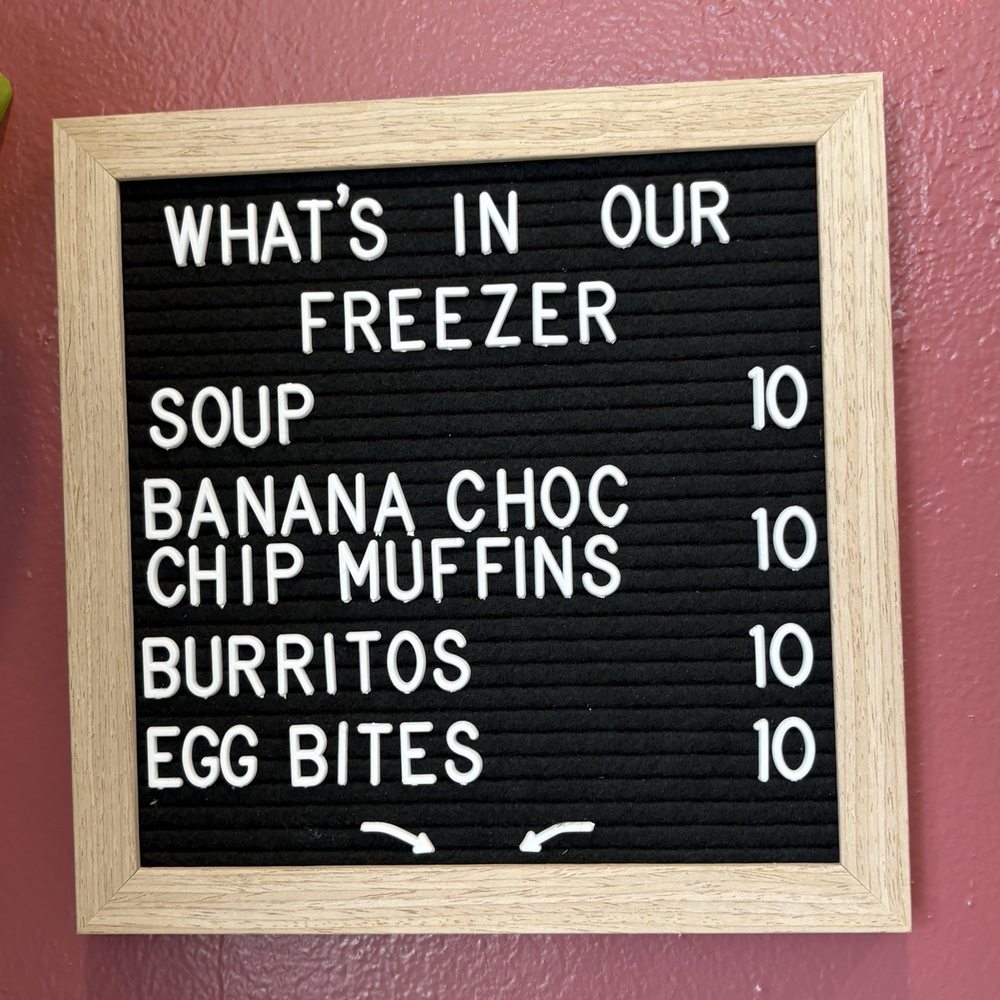 WHAT'S IN OUR
FREEZER
SOUP 10
BANANA CHOC
CHIP MUFFINS 10
BURRITOS 10
EGG BITES 10